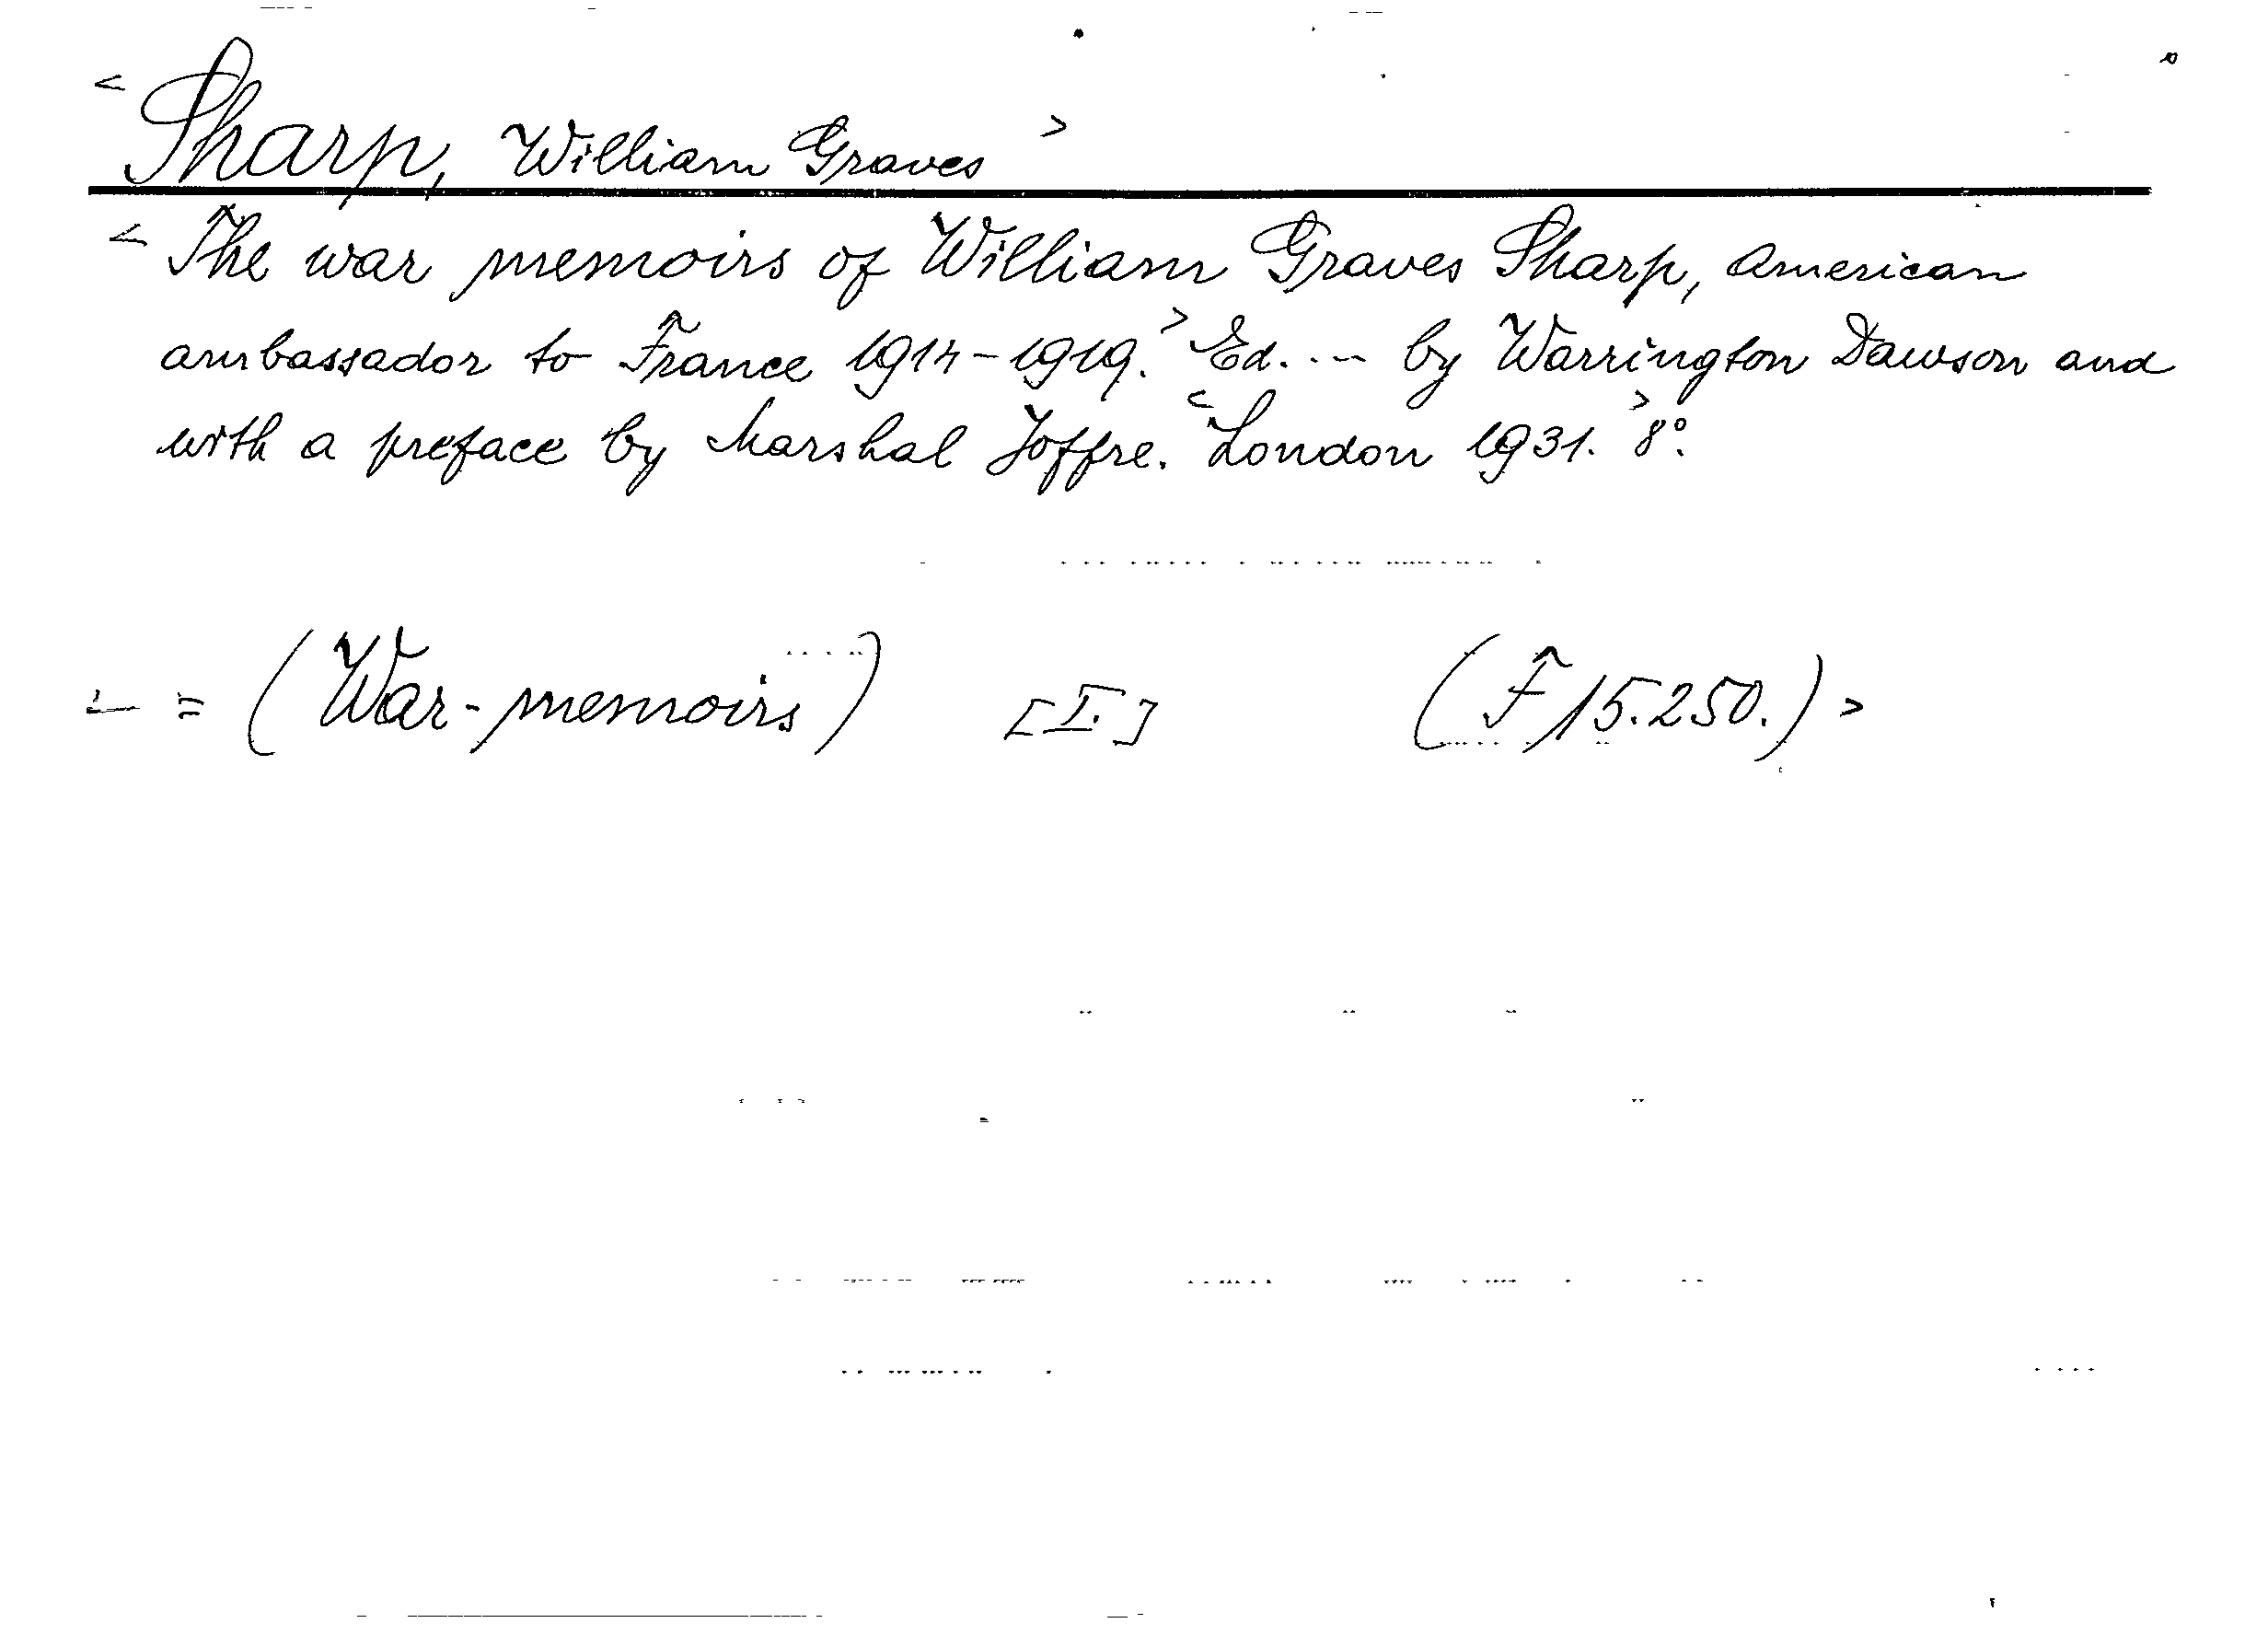 < Sharp, William Graves >
< The war memoirs of William Graves Sharp, American
ambassador to France 1914-1919. > Ed. --- by Warrington Dawson and
with a preface by Marshal Joffre. < London 1931. > 8°.
< = (War-memoirs) [I.] (F 15.250.) >